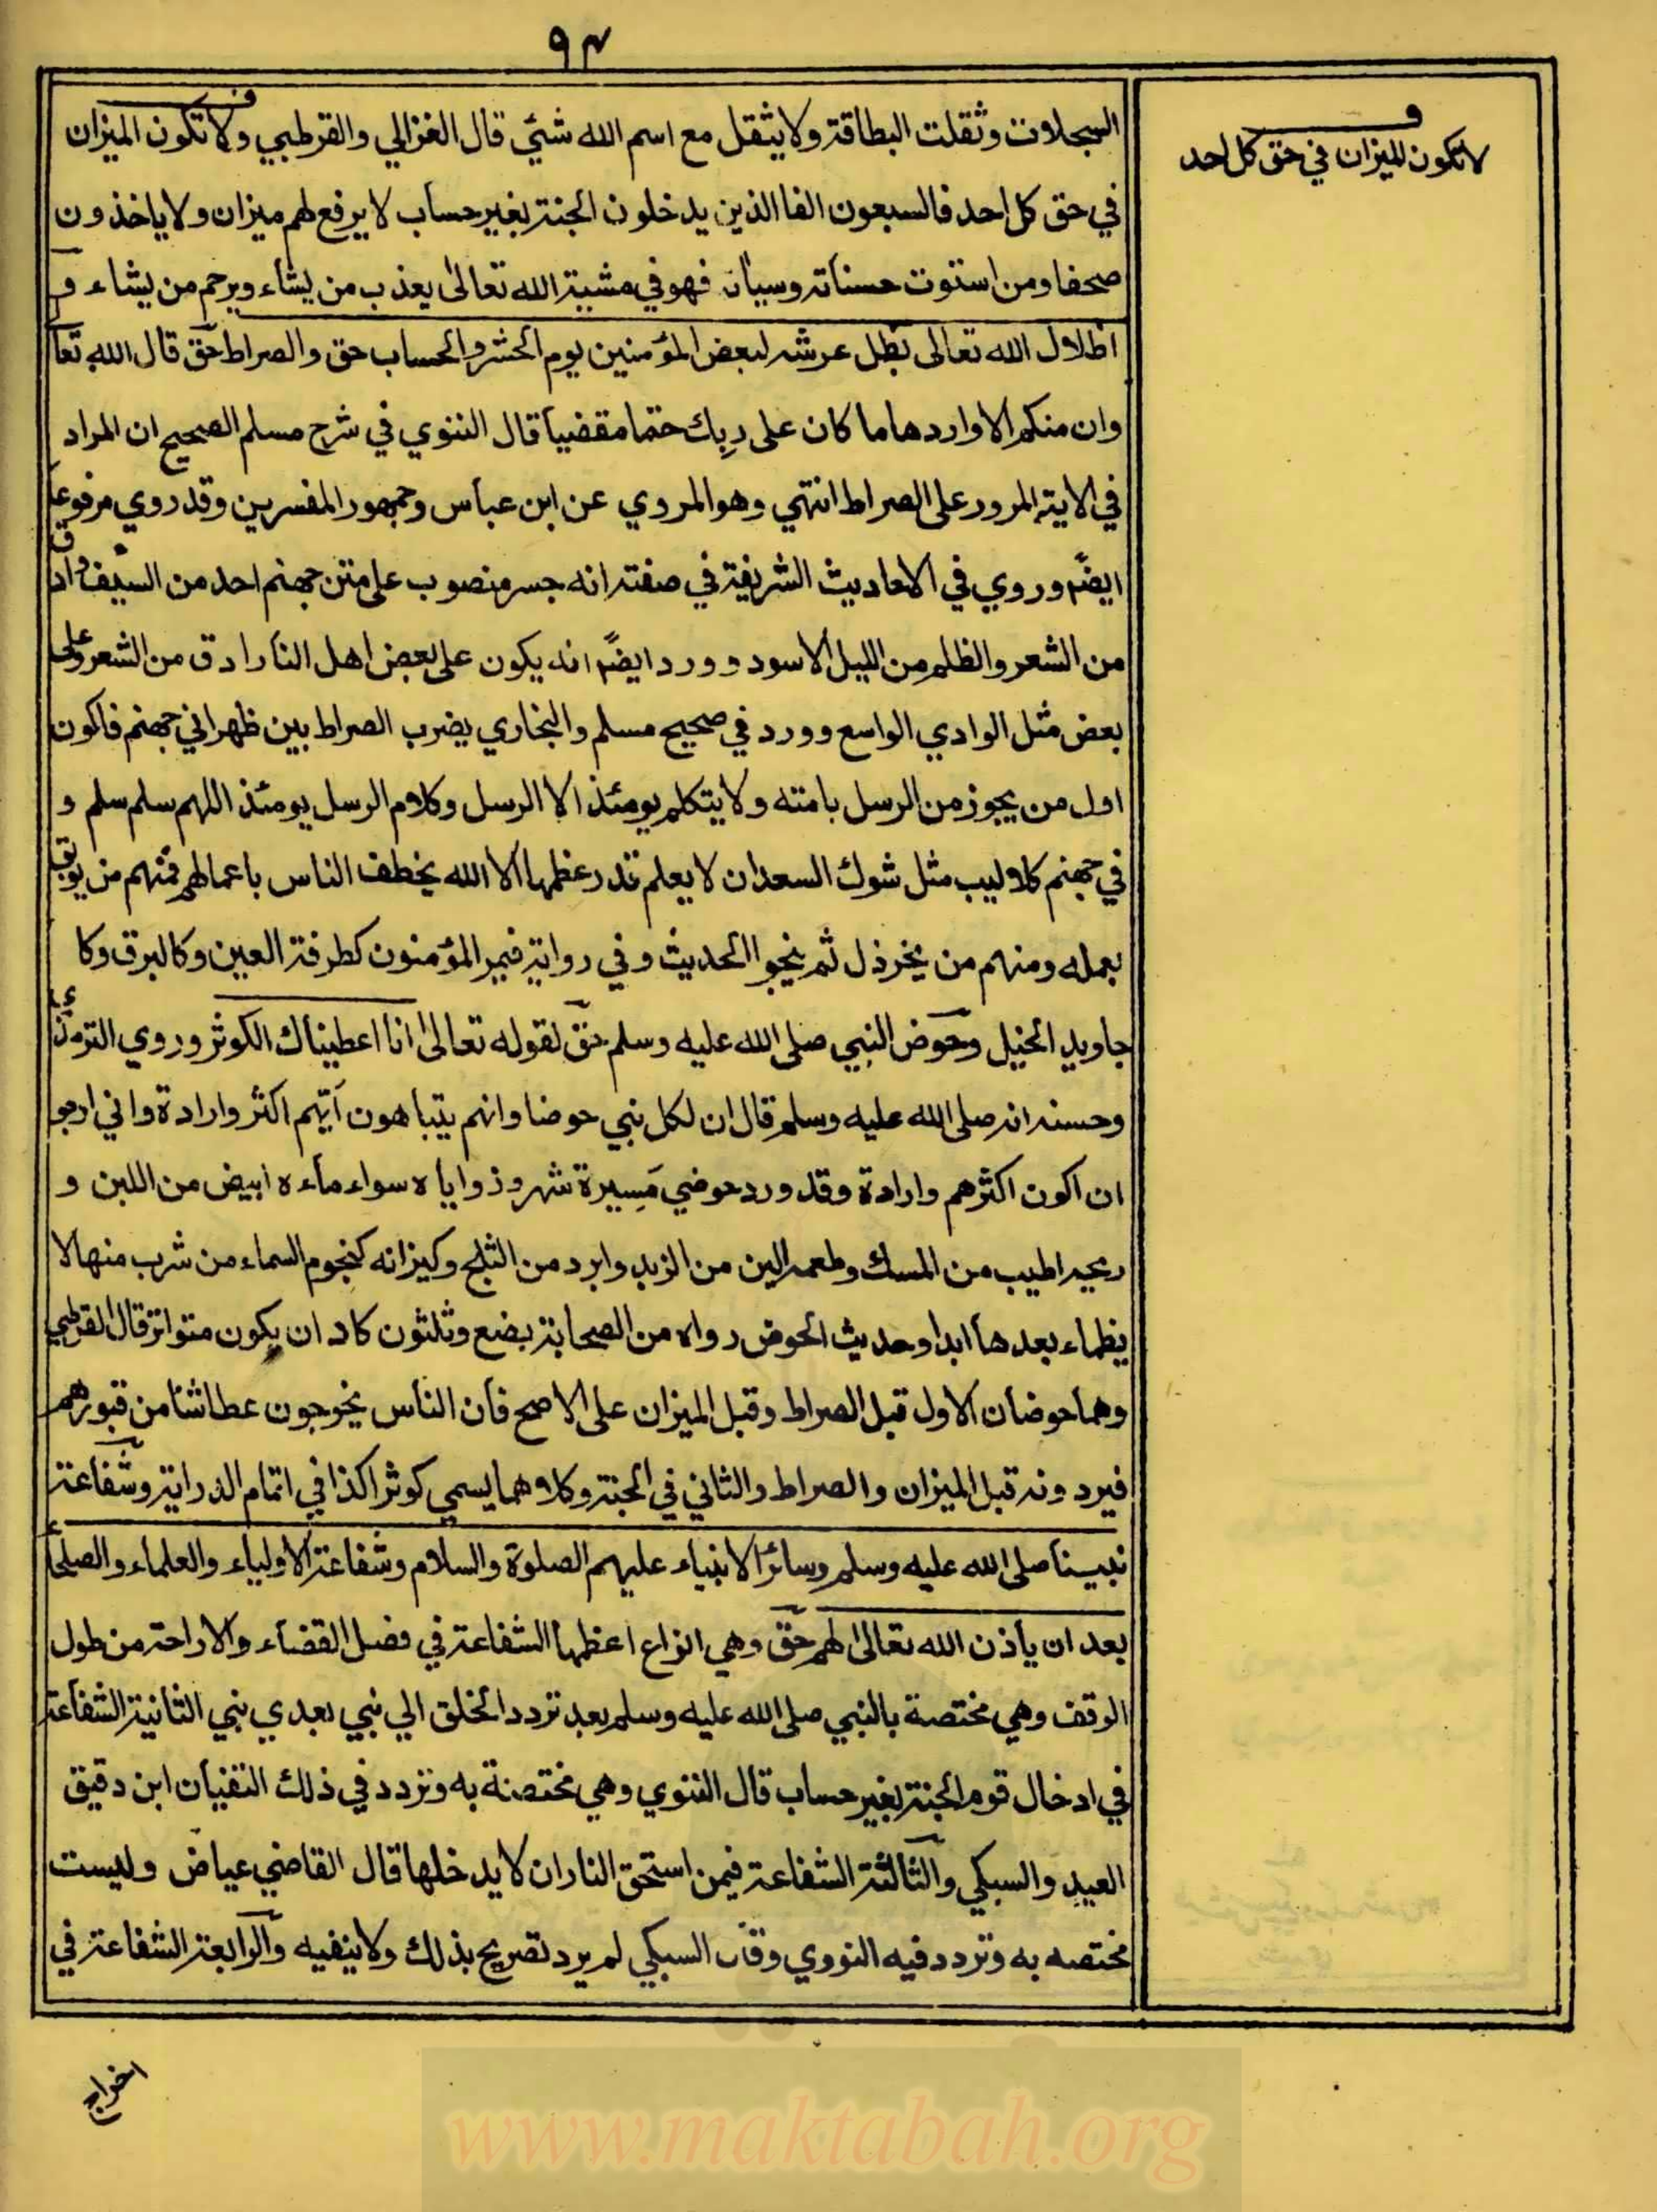 ٩٣
لا تكون الميزان في حق كل احد
السجلات وثقلت البطاقة ولا يثقل مع اسم الله شيئ قال الغزالي والقرطبي ولا تكون الميزان
في حق كل احد فالسبعون الفا الذين يدخلون الجنة بغير حساب لا يرفع لهم ميزان ولا ياخذون
صحفا ومن استوت حسناته وسيأته فهو في مشية الله تعالى يعذب من يشاء ويرحم من يشاء و
اظلال الله تعالى بظل عرشه لبعض المؤمنين يوم الحشر والحساب حق والصراط حق قال الله تعا
وان منكم الا واردها ما كان على ربك حتما مقضيا قال النووي في شرح مسلم الصحيح ان المراد
في الاية المرور على الصراط انتهي وهو المروي عن ابن عباس وجمهور المفسرين وقد روي مرفوعا
ايضًا وروي في الاحاديث الشريفة في صفته انه جسر منصوب على متن جهنم احد من السيف وادق
من الشعر والظلم من الليل الاسود وورد ايضًا انه يكون على بعض اهل النار ادق من الشعر وعلى
بعض مثل الوادي الواسع وورد في صحيح مسلم والبخاري يضرب الصراط بين ظهراني جهنم فاكون
اول من يجوز من الرسل بامته ولا يتكلم يومئذ الا الرسل وكلام الرسل يومئذ اللهم سلم سلم و
في جهنم كلاليب مثل شوك السعدان لا يعلم قدر عظمها الا الله يخطف الناس باعمالهم فمنهم من يوبق
بعمله ومنهم من يخرذل ثم ينجو الحديث وفي رواية فيمر المؤمنون كطرفة العين وكالبرق وكا
جاويد الخيل وحوض النبي صلى الله عليه وسلم حق لقوله تعالى انا اعطيناك الكوثر وروي الترمذي
وحسنه انه صلى الله عليه وسلم قال ان لكل نبي حوضا وانهم يتباهون ايهم اكثر وارادة واني ارجو
ان اكون اكثرهم وارادة وقد ورد حوضي مسيرة شهر وزواياه سواء ماءه ابيض من اللبن و
ريحه اطيب من المسك وطعمه الين من الزبد وابرد من الثلج وكيزانه كنجوم السماء من شرب منها لا
يظماء بعدها ابدا وحديث الحوض رواه من الصحابة بضع وثلثون كاد ان يكون متواتر قال القرطبي
وهما حوضان الاول قبل الصراط وقبل الميزان على الاصح فان الناس يخوجون عطاشا من قبورهم
فيردونه قبل الميزان والصراط والثاني في الجنة وكلاهما يسمي كوثرا كذا في اتمام الدراية وشفاعة
نبينا صلى الله عليه وسلم وسائر الانبياء عليهم الصلوة والسلام وشفاعة الاولياء والعلماء والصلحاء
بعد ان يأذن الله تعالى لهم حق وهي انواع اعظمها الشفاعة في فصل القضاء والاراحة من طول
الوقف وهي مختصة بالنبي صلى الله عليه وسلم بعد تردد الخلق الي نبي بعدي نبي الثانية الشفاعة
في ادخال قوم الجنة بغير حساب قال النووي وهي مختصة به وتردد في ذلك التقيان ابن دقيق
العيد والسبكي والثالثة الشفاعة فيمن استحق النار ان لا يدخلها قال القاضي عياض وليست
مختصه به وتردد فيه النووي وقال السبكي لم يرد تصريح بذلك ولا ينفيه والرابعة الشفاعة في
اخراج
www.maktabah.org